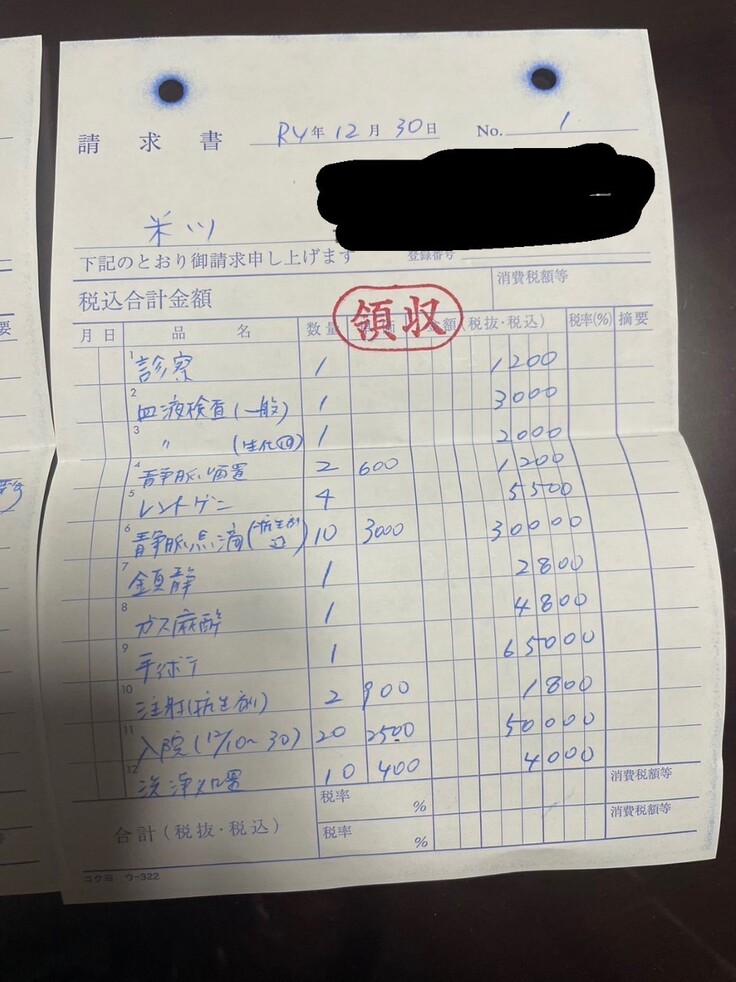 請求書 R4年12月30日 No. 1
米川
下記のとおり御請求申し上げます 登録番号
税込合計金額 消費税額等
領収
月 日 品名 数量 額(税抜・税込) 税率(%) 摘要
1 診察 1 1200
2 血液検査(一般) 1 3000
3 〃 (生化 1 2000
4 静脈留置 2 600 1200
5 レントゲン 4 5500
6 静脈点滴(抗生剤込) 10 3000 30000
7 鎮静 1 2800
8 ガス麻酔 1 4800
9 手術 1 65000
10 注射(抗生剤) 2 900 1800
11 入院(12/10~30) 20 2500 50000
12 洗浄処置 10 400 4000
税率 % 消費税額等
合計(税抜・税込)
税率 % 消費税額等
コクヨ ウ-322
要